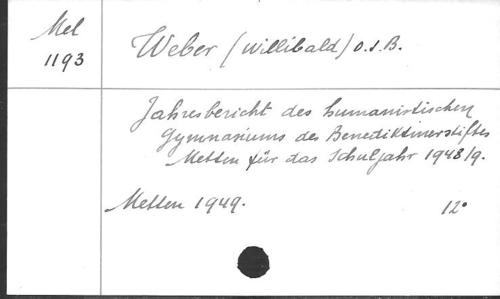 Mel
1193
Weber (Willibald) O.S.B.
Jahresbericht des humanistischen
Gymnasiums des Benediktinerstiftes
Metten für das Schuljahr 1948/9.
Metten 1949.
12°